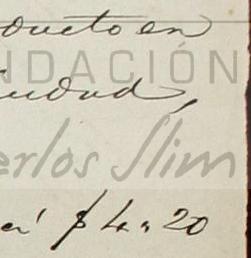 oducto en
NDACIÓN
iudad,
erlos Slim
en' $ 4 " 20